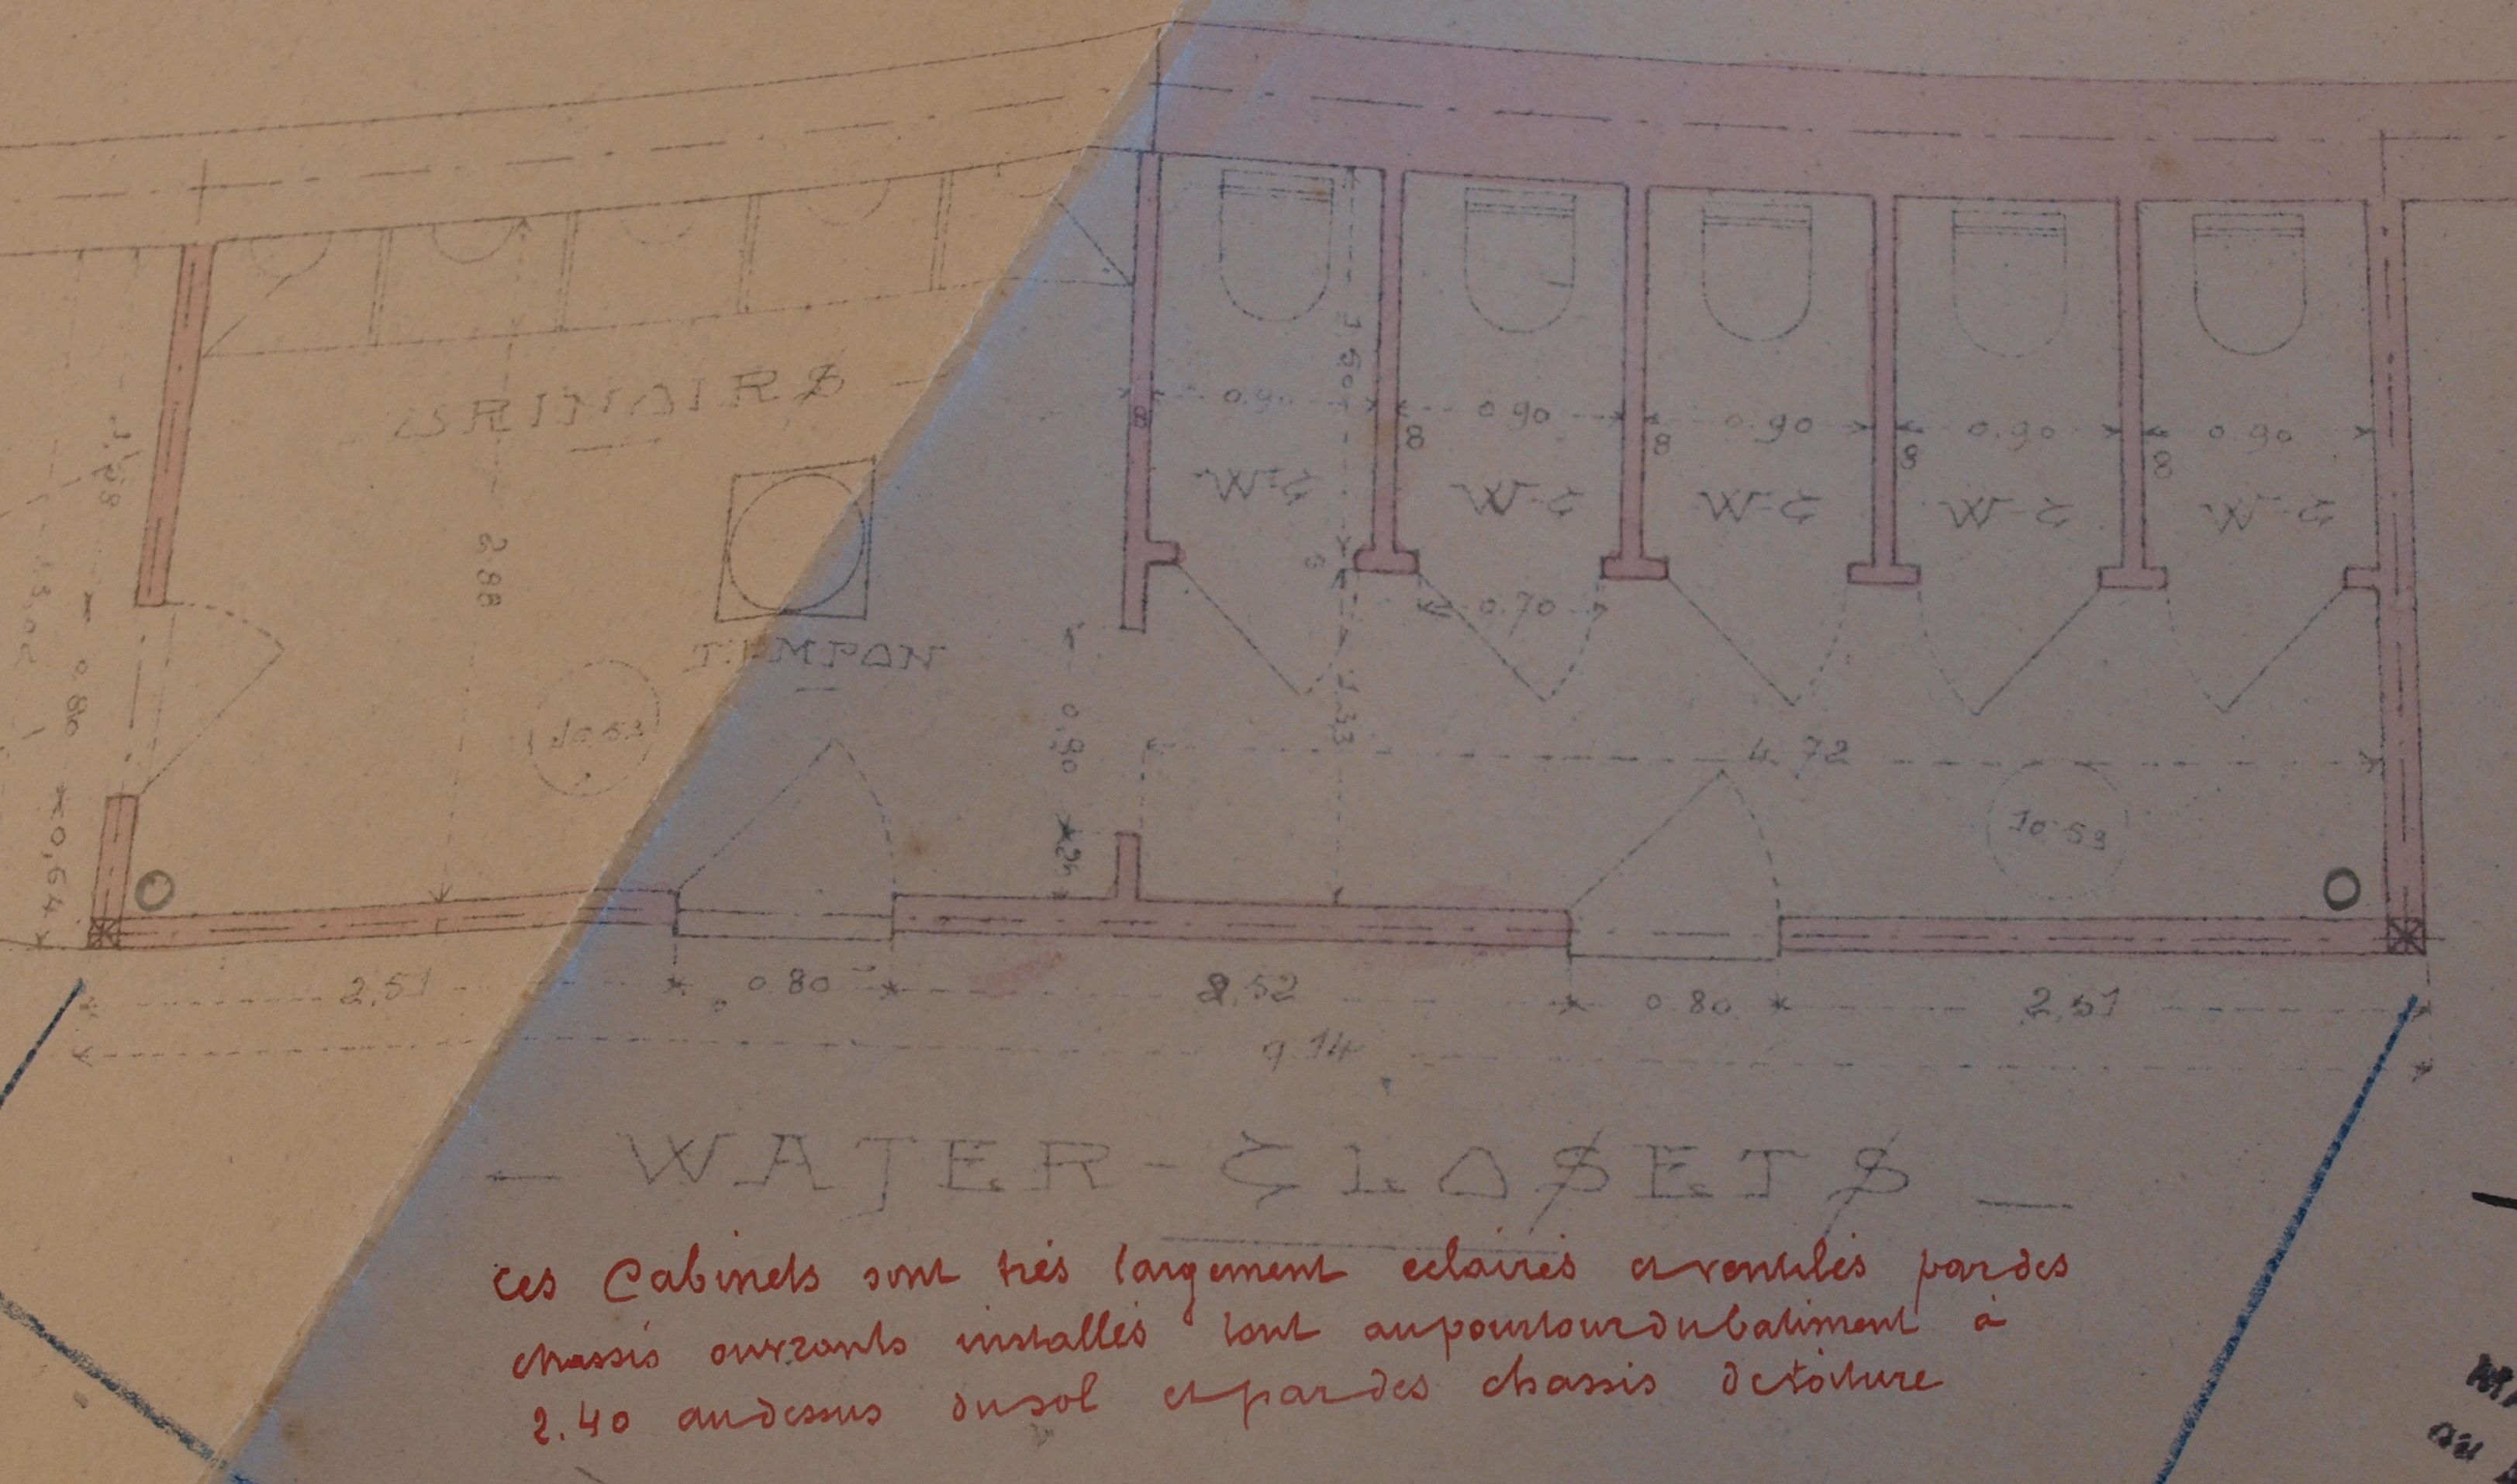 URINAIRS
TAMPON
2.88
0.80
0,64
10.53
0.90
0.90
0.90
0.90
0.90
8
8
8
8
8
1.50
W-C
W-C
W-C
W-C
W-C
0.70
1.33
0.90
4.72
10.53
2,51
0.80
2,52
0.80
2,51
9.14
— WATER-CLOSETS —
Ces Cabinets sont très largement eclairés et ventilés par des
chassis ouvrants installés tout au pourtour du batiment à
2.40 au dessus du sol et par des chassis de toiture